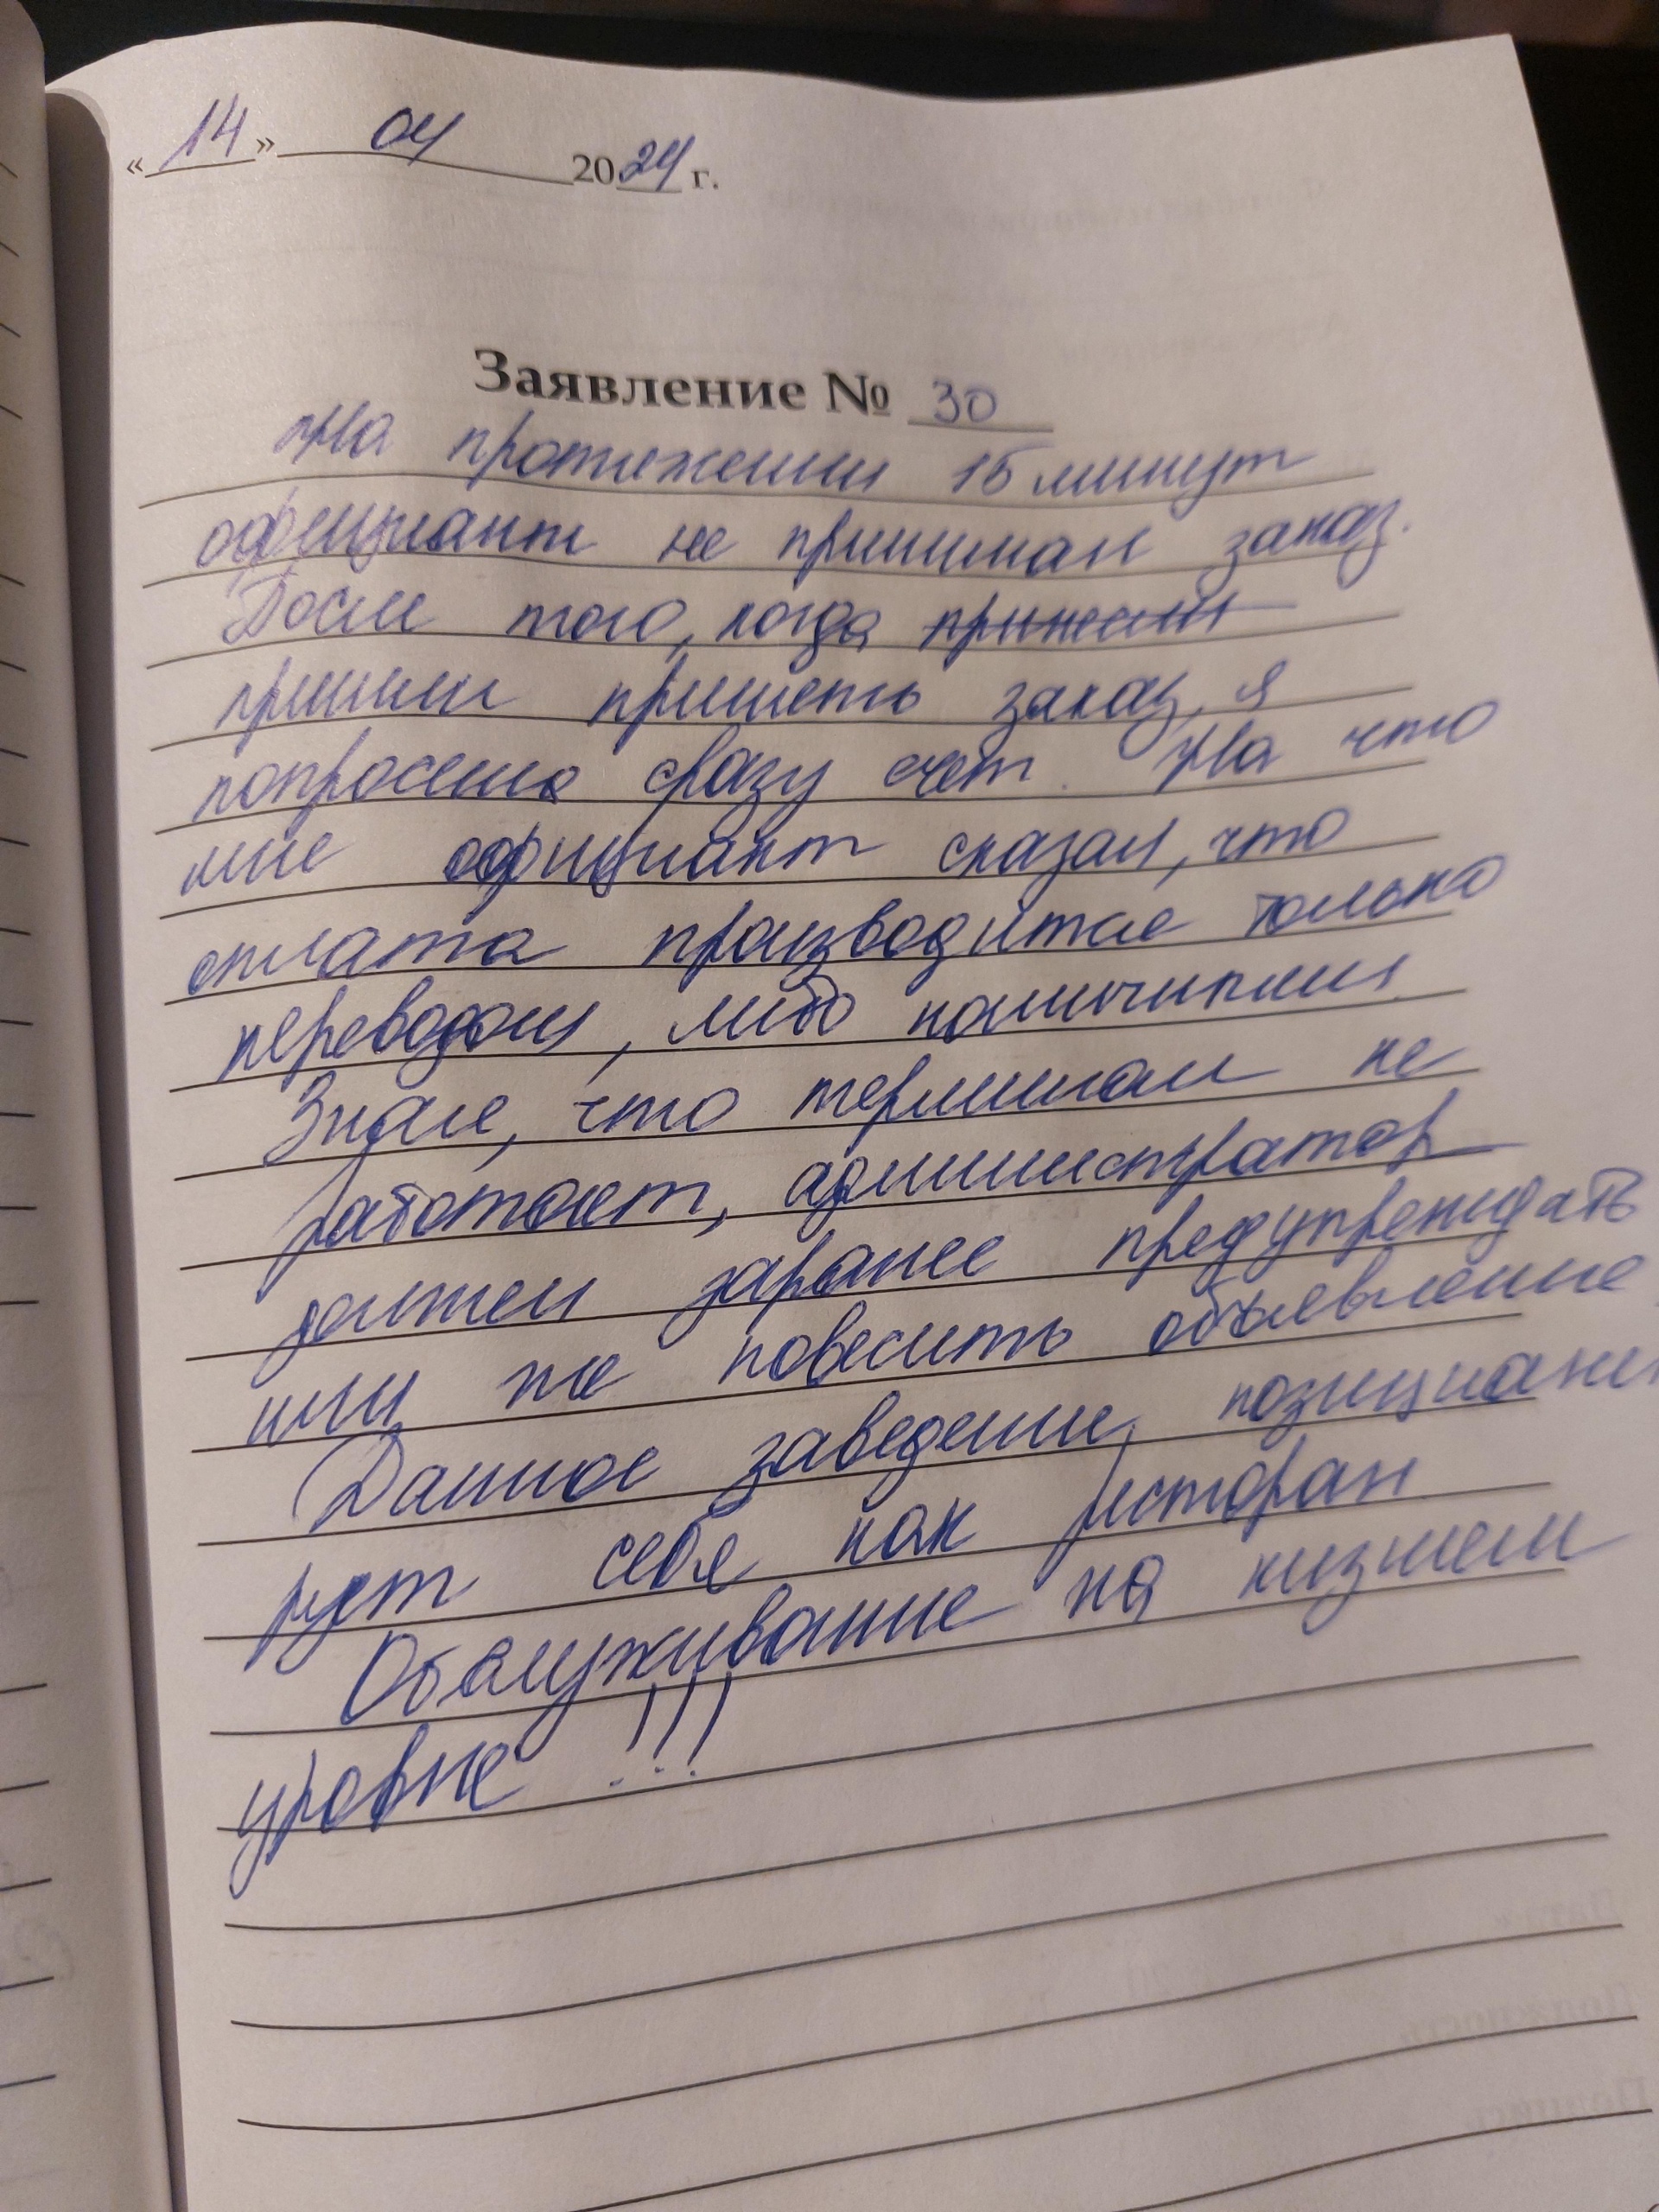 «14» 04 2024 г.
Заявление № 30
На протяжении 15 минут
официант не принимал заказ.
После того, когда принесли
пришли принять заказ, я
попросила сразу счет. На что
мне официант сказал, что
оплата производится только
переводом, либо наличными
Зная, что терминал не
работает, администратор
должен заранее предупреждать
или же повесить объявление
Данное заведение позициани
рует себя как ресторан
Обслуживание на низшем
уровне!!!